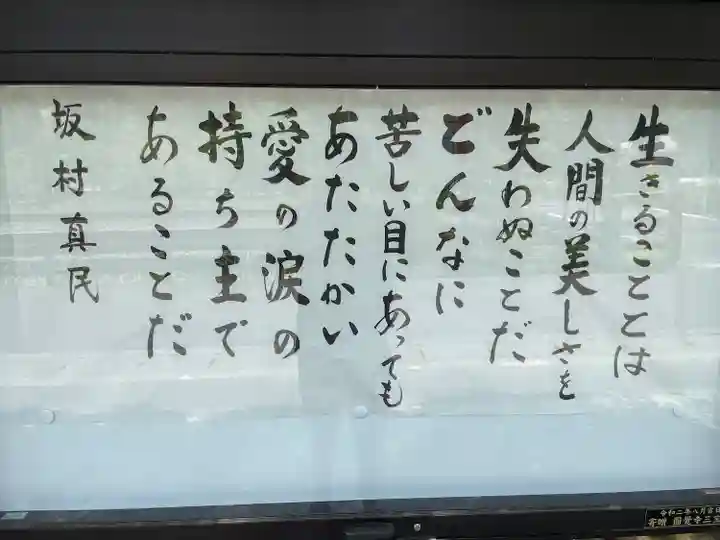 生きることとは
人間の美しさを
失わぬことだ
どんなに
苦しい目にあっても
あたたかい
愛の涙の
持ち主で
あることだ
坂村真民
令和二年八月吉日